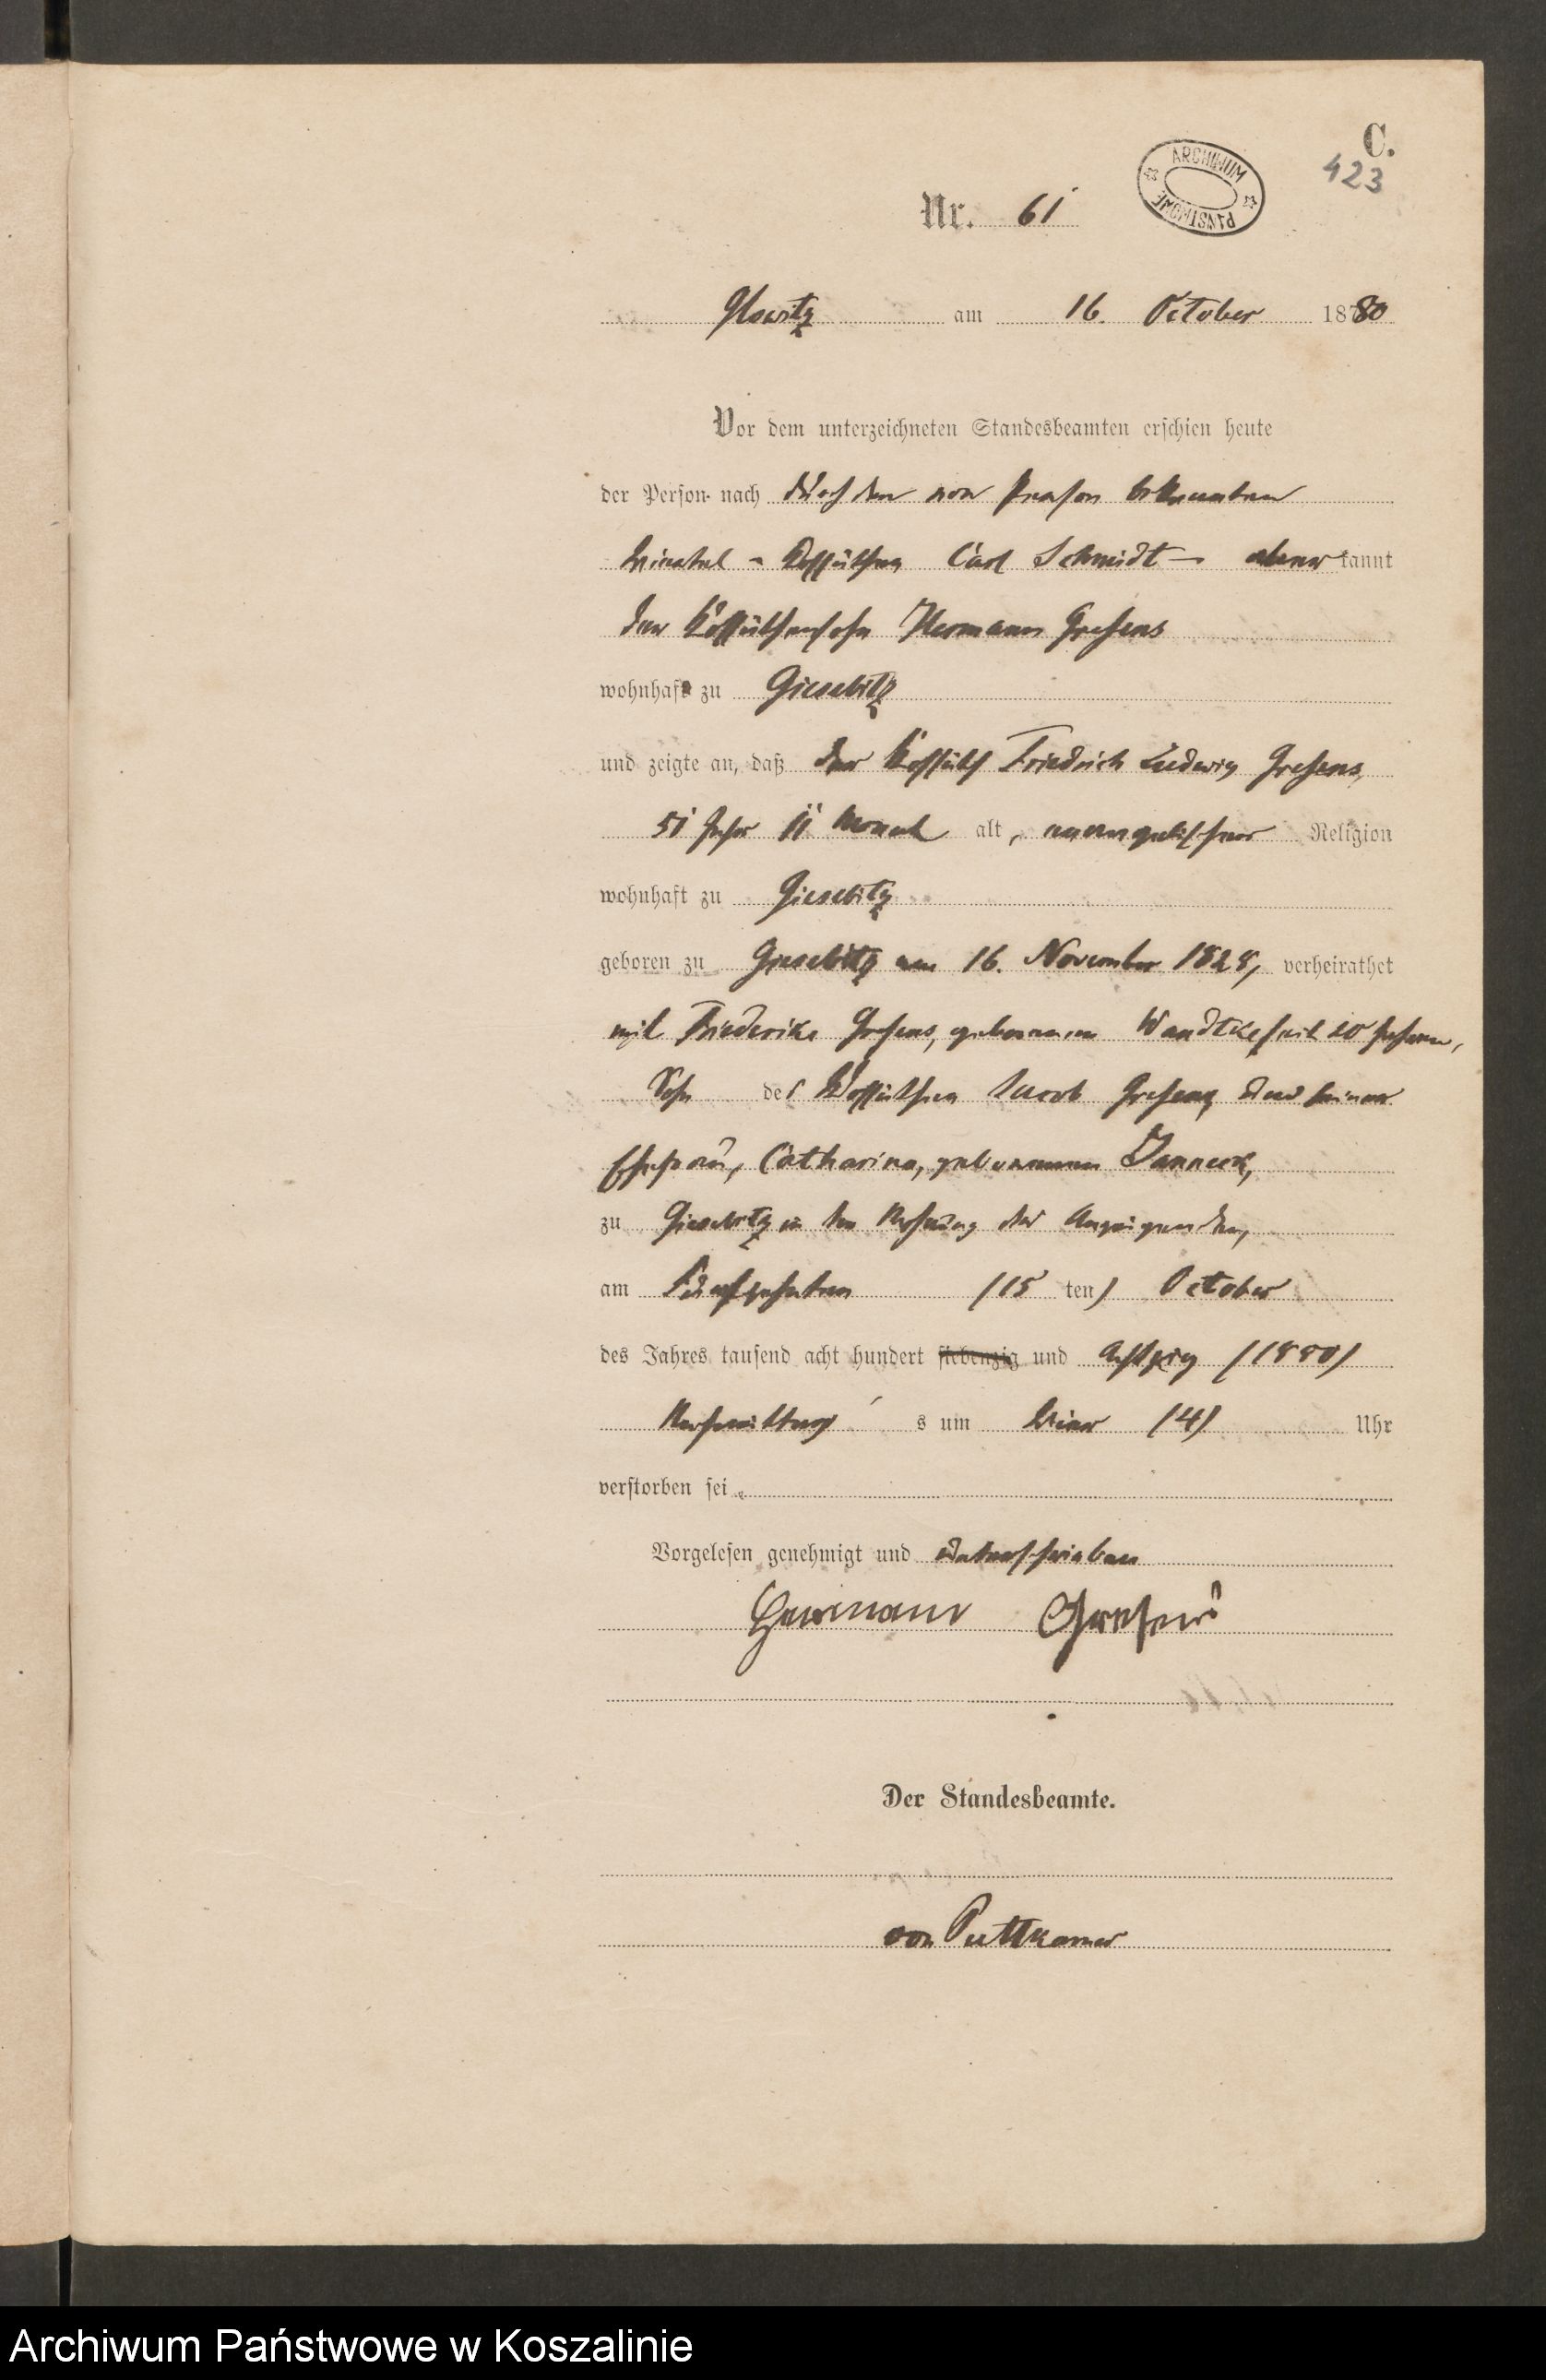 C.
423
ARCHIWUM PAŃSTWOWE
Nr. 61
Glowitz am 16. October 1880
Vor dem unterzeichneten Standesbeamten erschien heute
der Person nach durch den von Person bekannten
Carl Schmidt – anerkannt
der Kossäthensohn Hermann Gresens
wohnhaft zu Giesebitz
und zeigte an, daß der Kossäth Friedrich Ludwig Gresens,
51 Jahr 11 Monat alt, evangelischer Religion
wohnhaft zu Giesebitz
geboren zu Giesebitz am 16. November 1828, verheirathet
mit Friederike Gresens, geborenen Wandtke seit 20 Jahren,
Sohn des Kossäthen Jacob Gresens und seiner
Ehefrau, Catharina, geborenen Janneck,
zu Giesebitz in der Wohnung des Anzeigenden,
am Fünfzehnten (15 ten) October
des Jahres tausend acht hundert siebenzig und Achtzig (1880)
Nachmittags um Vier (4) Uhr
verstorben sei.
Vorgelesen genehmigt und unterschrieben
Hermann Gresens
Der Standesbeamte.
von Puttkamer
Archiwum Państwowe w Koszalinie